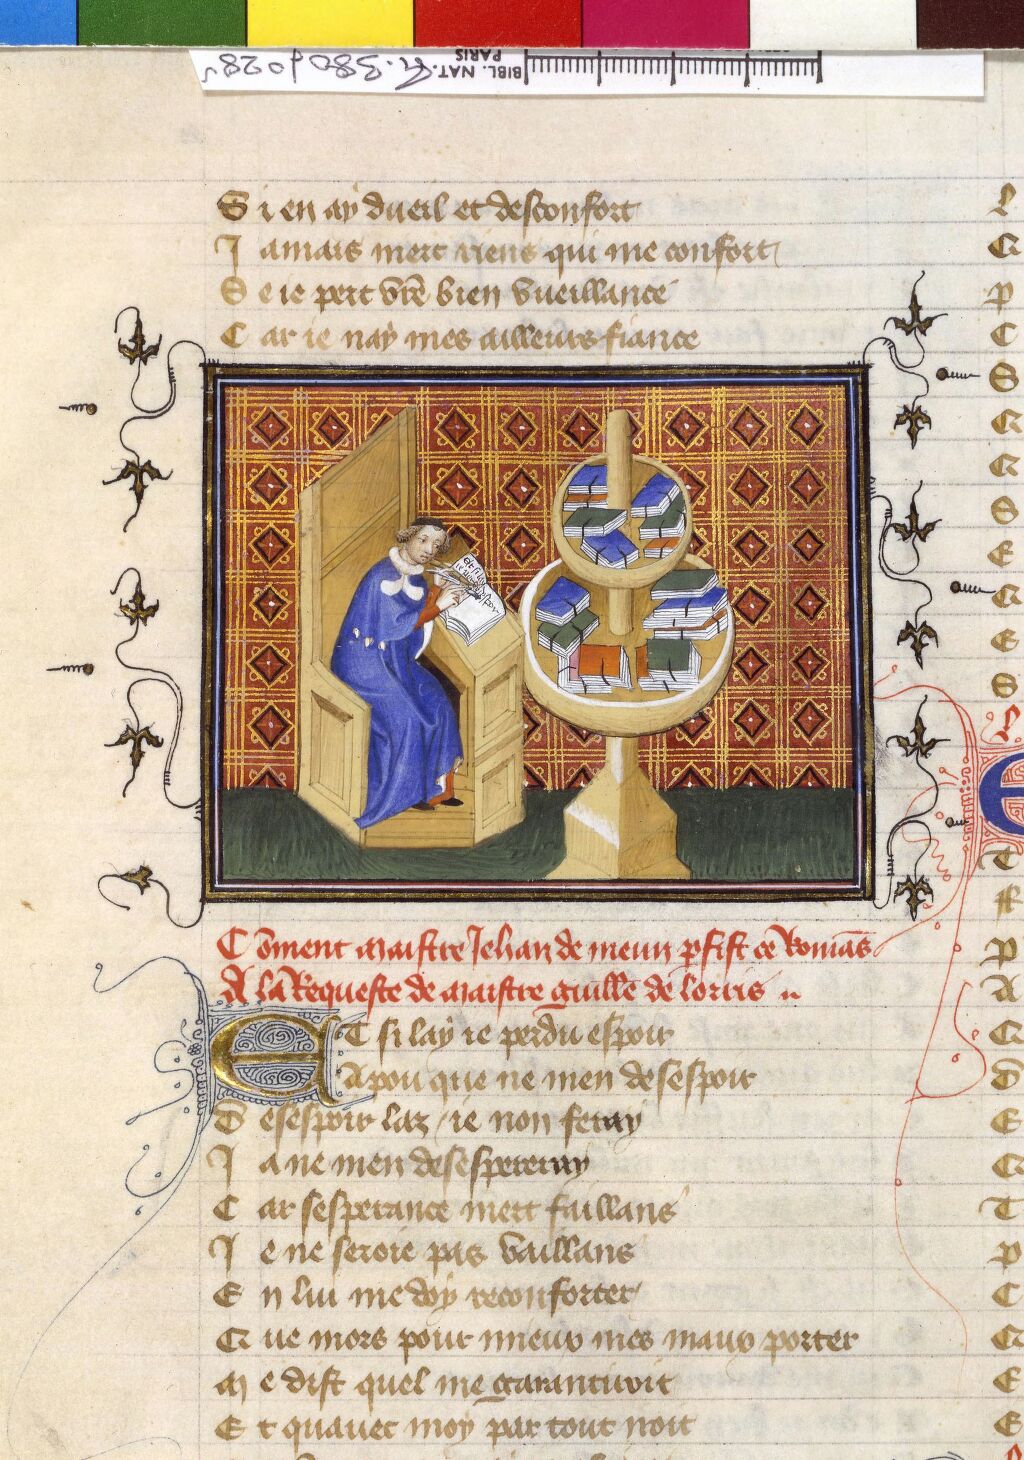 BIBL. NAT.
PARIS
fr. 380 fo 28v
S i en ay dueil et desconfort
J amais mert riens qui me confort
S e ie pert vr̃e bien vueillance
C ar ie nay mes ailleurs fiance
C õment maistre Jehan de meun p̱fist ce Romãs
A la Requeste de maistre guille de lorris
E T si lay ie perdu espoir
A pou que ne men desespoir
D esespoir laz ie non feray
J a ne men desespereray
C ar sesperance mert faillans
J e ne seroie pas vaillans
E n lui me doy reconforter
Q ue mors pour mieux mes maux porter
M e dist quel me garantiroit
E t quauec moy par tout iroit